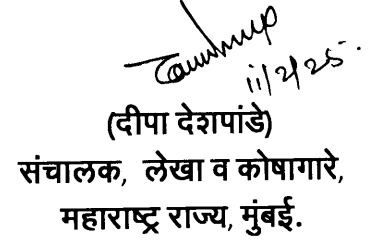 11/2/25.
(दीपा देशपांडे)
संचालक, लेखा व कोषागारे,
महाराष्ट्र राज्य, मुंबई.